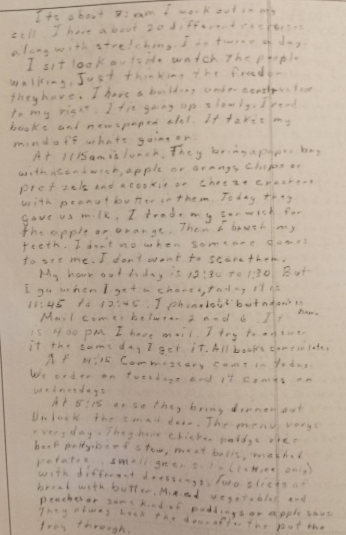 Its about 7: am I work out in my
cell I have about 20 different exercises
along with stretching. I do twice a day.
I sit look outside watch. The people
walking, Just thinking the freedom
they have. I have a building under construction
to my right. I it's going up slowly. I read
books and newspaper alot. It takes my
mind off whats going on
At 11:15am is lunch. They bring a paper bag
with a sandwich, apple or orange, chips or
pretzels and a cookie or cheese crackers
with peanut butter in them. Today they
gave us milk. I trade my sandwish for
the apple or orange. Then I brush my
teeth. I don't no when someone comes
to see me. I don't want to scare them.
My hour out today is 12:30 to 1:30. But
I go when I get a chance, today it is
11:45 to 12:45. I phined but no one is home.
Mail comes between 2 and 6. If
is 4:00 PM I have mail. I try to answer
it the same day I get it. All books
At 4:15 Commissary came in today.
We order on Tuesdays and it comes on
wednesdays
At 5:15 or so they bring dinner out
Unlock the small door. The menu varys
everyday. They have chicken paddys rice
beef patty, beef stew, meat balls, mashed
potatoe, small green (lettuce only)
with different dressings. Two slices of
bread with butter. Mixed vegetables and
peaches or some kind of puddings or apple sauce
They always lock the door after the put the
tray through.